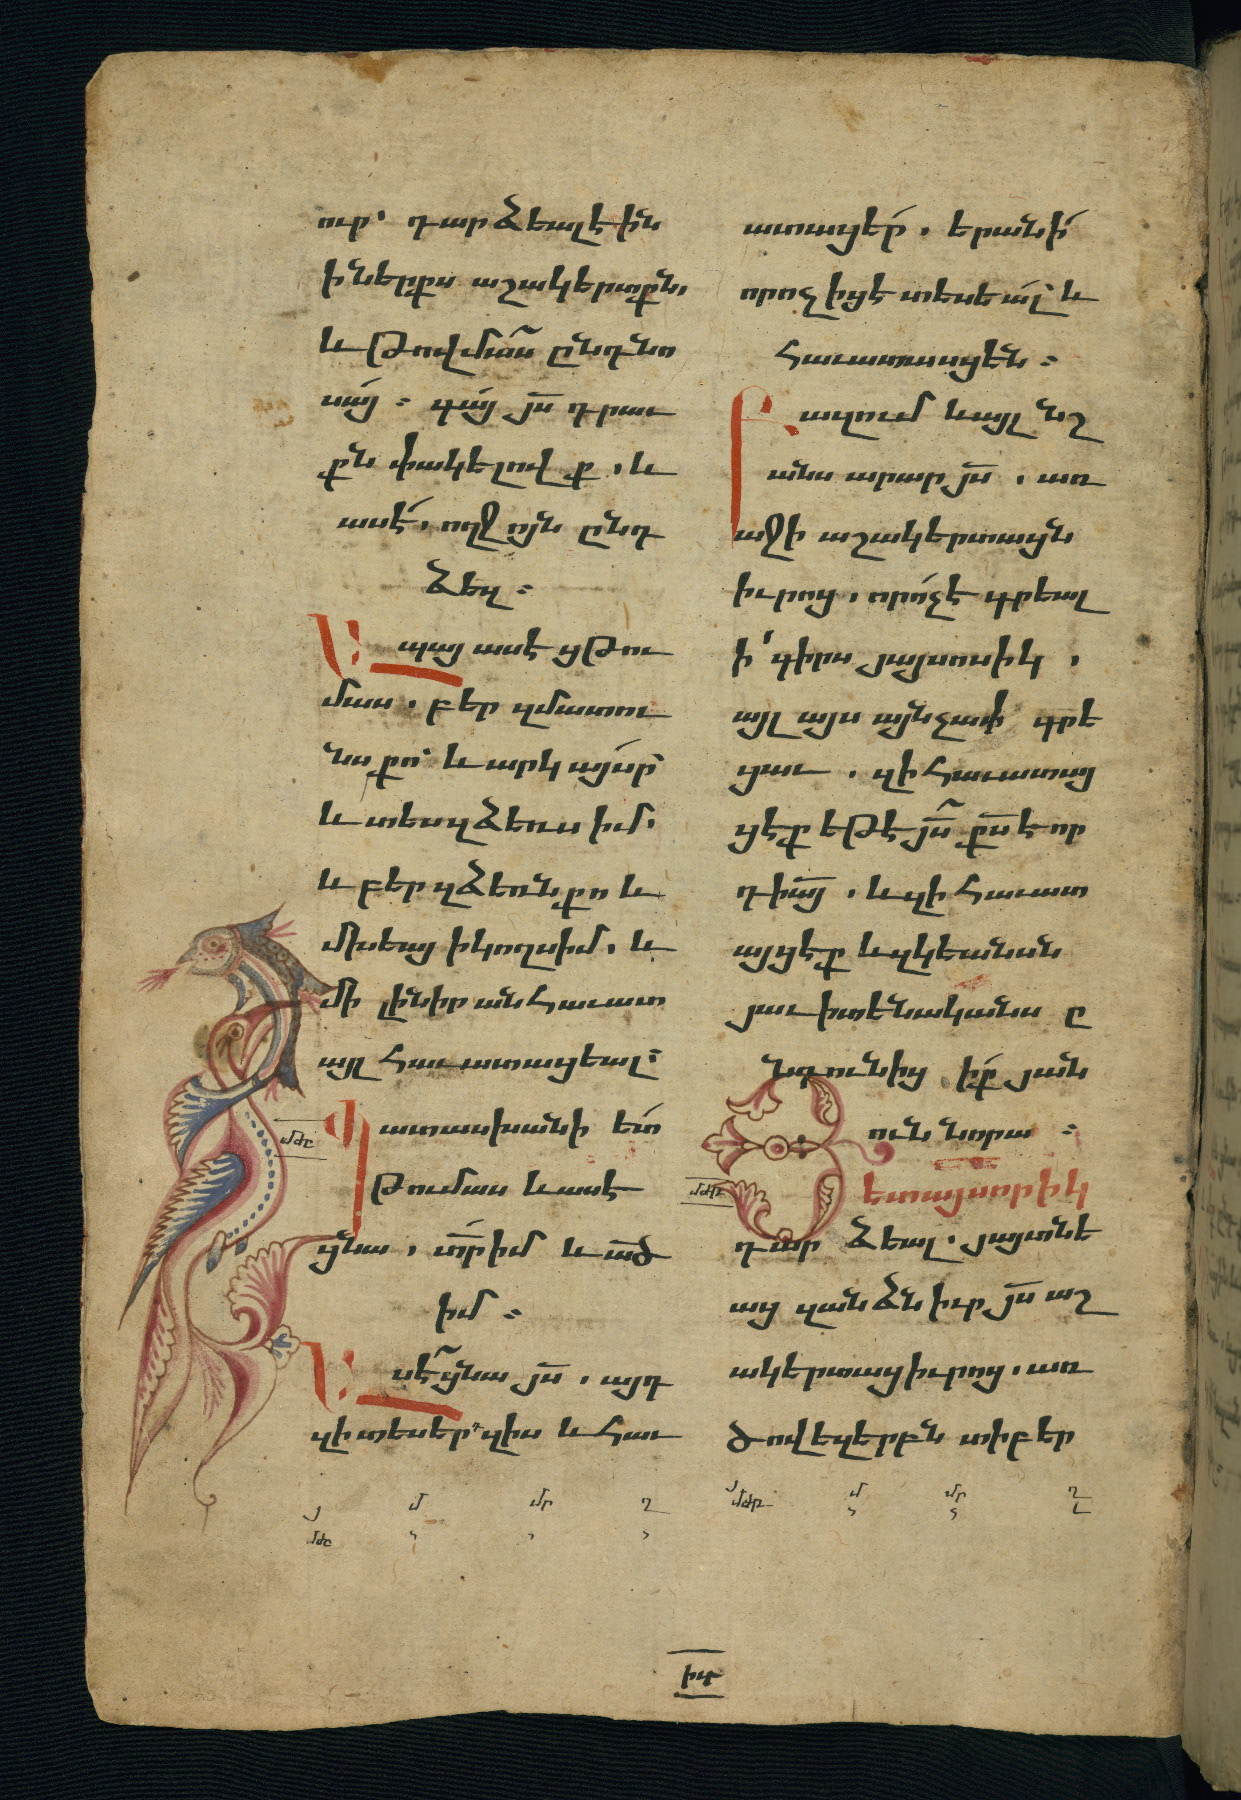 ուր՝ դարձեալ էին
ի ներքս աշակերտքն,
և Թովմաս ընդ նո
սայ ։ գայ յս դրաւ
քն փակելովք . և
ասէ, ողջոյն ընդ
ձեզ ։
Ապայ ասէ ցԹու
մաս . բեր զմատու
նս քո՝ և արկ այսր
և տես զձեռս իմ.
և բեր զձեռն քո և
մխեայ ի կողս իմ . և
մի լինիր անհաւատ
այլ հաւատացեալ ։
մժը
Պատասխանի ետ
Թումաս և ասէ
ցնա . տր իմ և ած
իմ ։
Ասէ ցնա յս . այդ
զի տեսեր զիս և հաւ
ատացեր . երանի
որոչ իցէ տեսեալ և
հաւատասցեն ։
Բազում և այլ նշ
անս արար յս . առ
աջի աշակերտացն
իւրոց . որ ոչ է գրեալ
ի գիրս յայսոսիկ .
այլ այս այնչափ գրե
ցաւ . զի հաւատայ
ցէք եթէ յս քս է որ
դի այ . և զի հաւատ
այցէք և զկեանսն
յաւիտենականս ը
նդունիցիք յան
ուն նորա ։
Յետ այսորիկ
դարձեալ . յայտնե
աց զանձն իւր յս աշ
ակերտաց իւրոց . առ
ծովեզերբն տիբեր
իդ